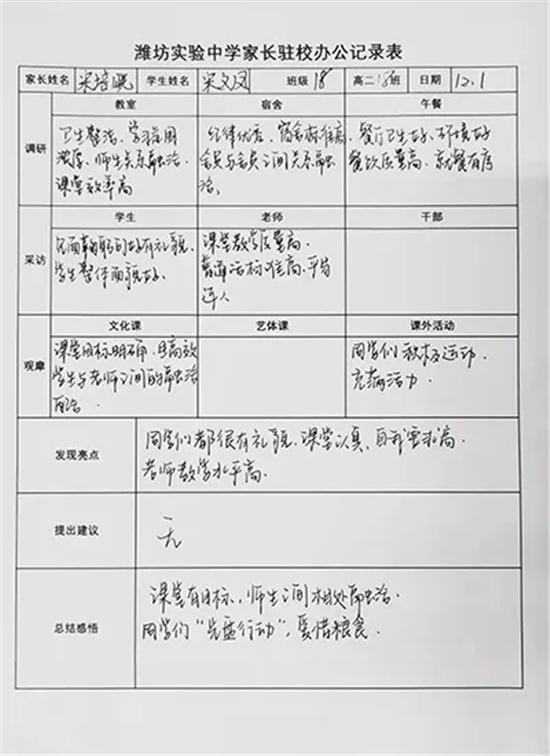 潍坊实验中学家长驻校办公记录表
家长姓名 宋培晓 学生姓名 宋文凤 班级 18 高二18班 日期 12.1
调研
教室
卫生整洁、学习氛围
浓厚、师生关系融洽、
课堂效率高
宿舍
纪律优秀、宿舍标准高
舍员与舍员之间关系融
洽、
午餐
餐厅卫生好、环境好
餐饮质量高、就餐有序
采访
学生
有礼貌、
学生整体面貌好、
老师
课堂教学质量高、
普通话标准高、平易
近人
干部
观摩
文化课
课堂目标明确、且高效
学生与老师之间的融洽
艺体课
课外活动
同学们积极运动、
充满活力
发现亮点
同学们都很有礼貌、课堂认真、自我要求高、
老师教学水平高、
提出建议
无
总结感悟
课堂有目标、师生之间相处融洽、
同学们“光盘行动”、爱惜粮食、